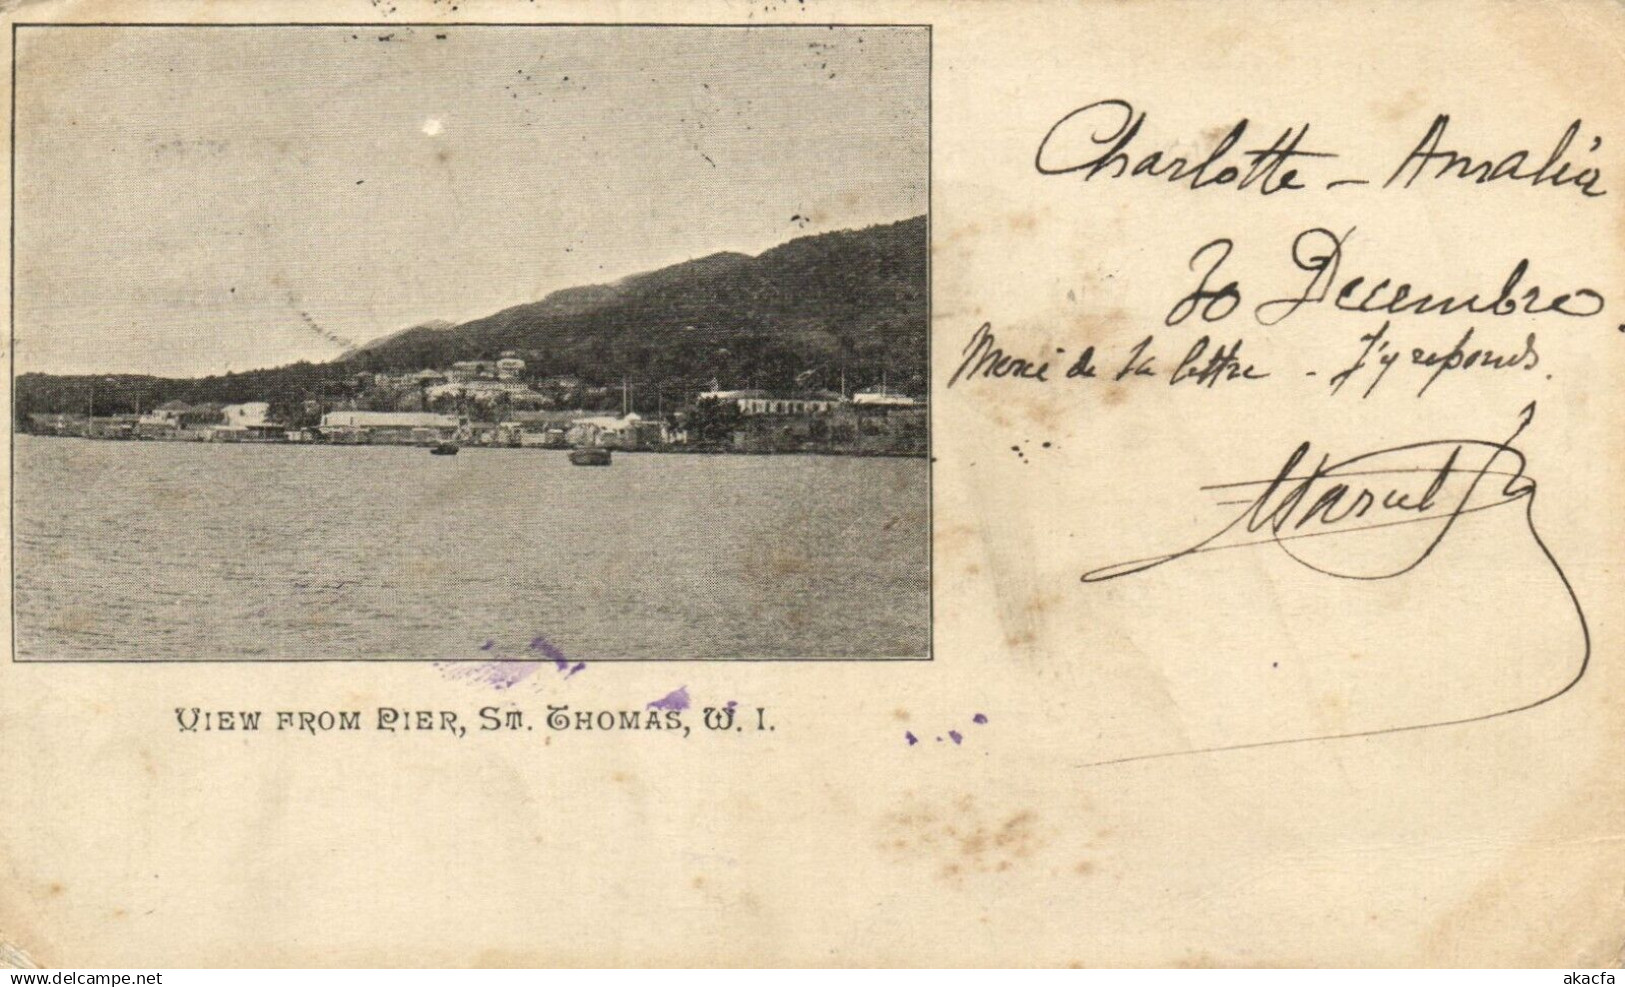 Charlotte - Amalia
30 Decembre
Merci de ta lettre - J'y reponds.
Marcel
VIEW FROM PIER, ST. THOMAS, W. I.
www.delcampe.net
akacfa